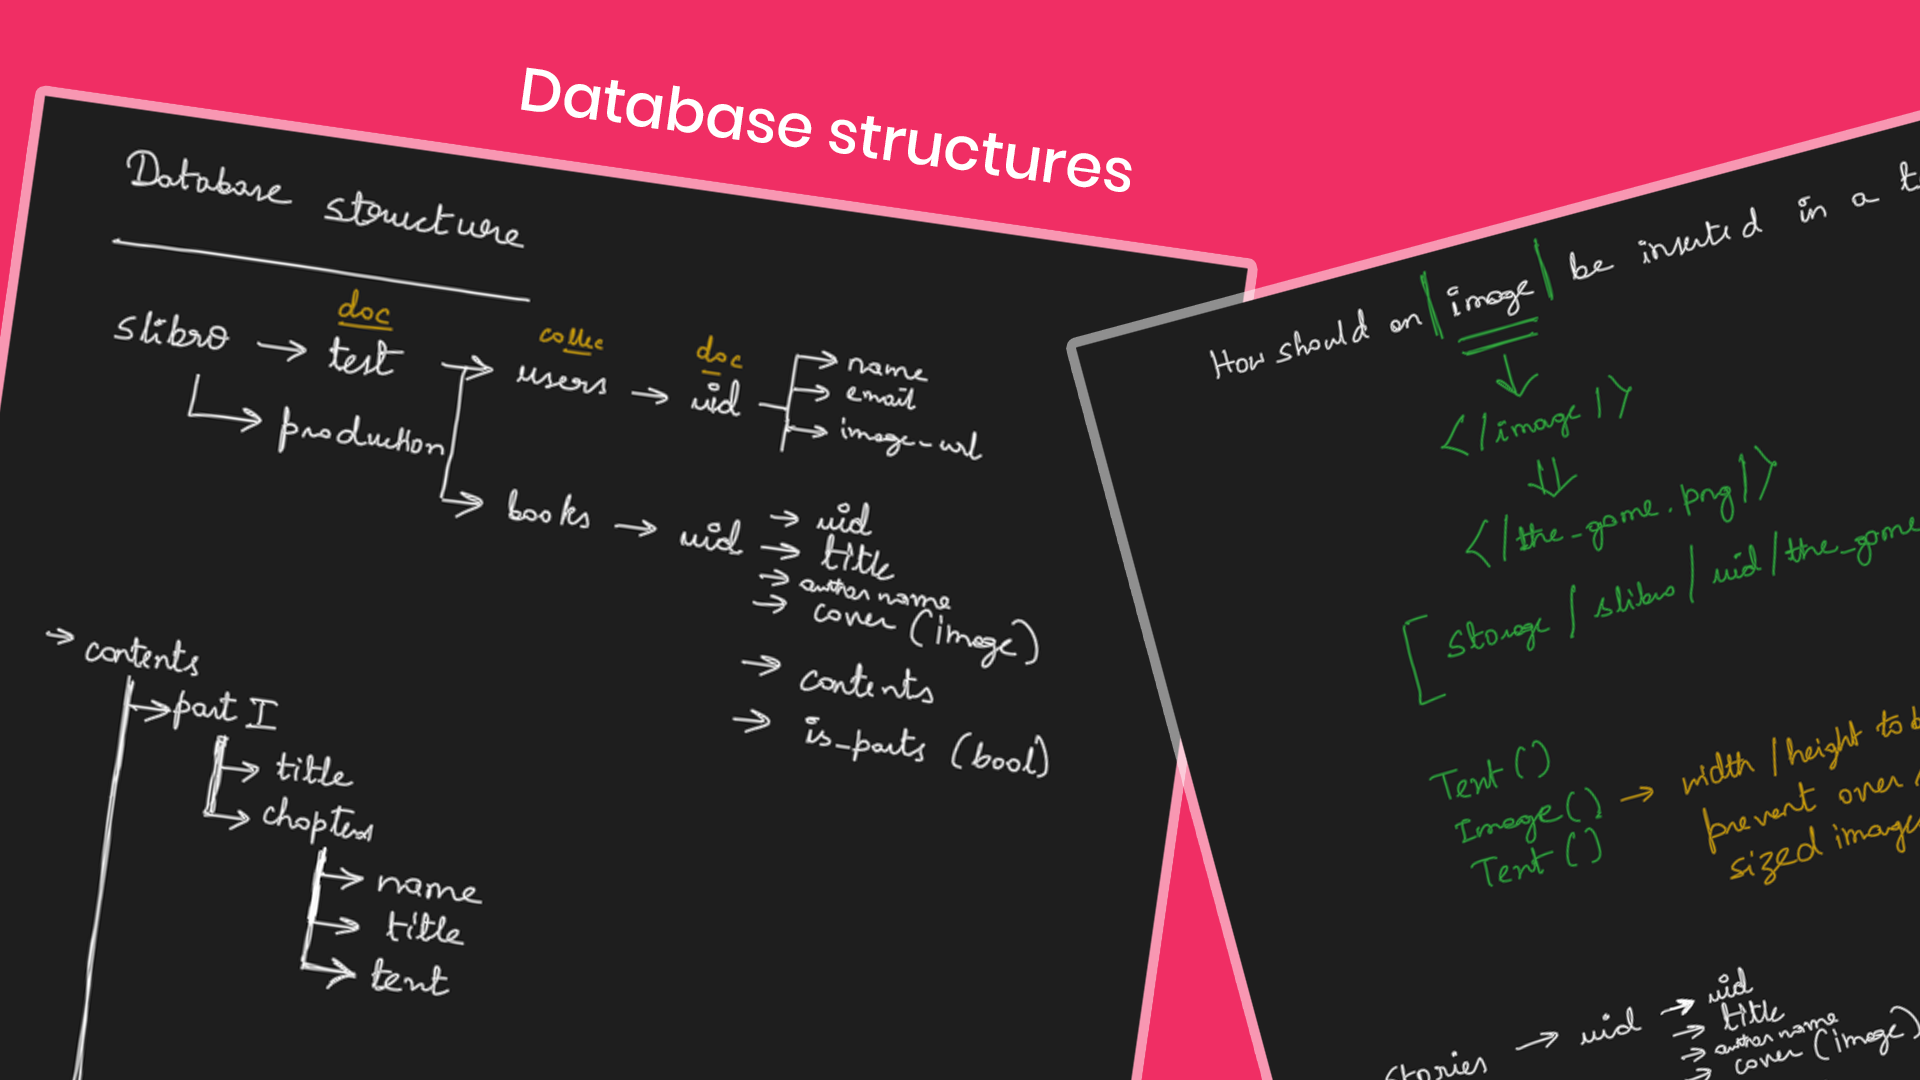 Database structures
Database structure
doc
collec
doc
slibro → test → users → uid → name
→ email
→ image-url
→ production
→ books → uid → uid
→ title
→ author name
→ cover (image)
→ contents
→ is_parts (bool)
→ contents
→ part I
→ title
→ chapters
→ name
→ title
→ text
How should an |image| be inserted in a
</image|>
</the_game.png|>
[ storage / slibro / uid / the_game
Text()
Image() → width / height to
prevent over
sized image
Text()
stories → uid → uid
→ title
→ author name
→ cover (image)